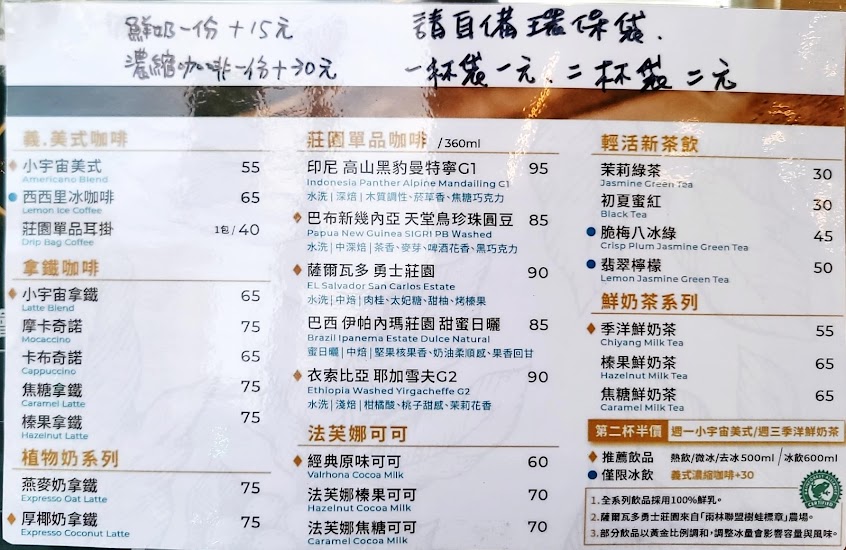 鮮奶一份+15元
濃縮咖啡一份+30元
請自備環保袋.
一杯袋一元.二杯袋二元
義.美式咖啡
◆ 小宇宙美式 55
Americano Blend
● 西西里冰咖啡 65
Lemon Ice Coffee
莊園單品耳掛 1包/40
Drip Bag Coffee
拿鐵咖啡
◆ 小宇宙拿鐵 65
Latte Blend
摩卡奇諾 75
Mocaccino
卡布奇諾 65
Cappuccino
焦糖拿鐵 75
Caramel Latte
榛果拿鐵 75
Hazelnut Latte
植物奶系列
燕麥奶拿鐵 75
Expresso Oat Latte
◆ 厚椰奶拿鐵 75
Expresso Coconut Latte
莊園單品咖啡 /360ml
印尼 高山黑豹曼特寧G1 95
Indonesia Panther Alpine Mandailing G1
水洗|深焙|木質調性、菸草香、焦糖巧克力
◆ 巴布新幾內亞 天堂鳥珍珠圓豆 85
Papua New Guinea SIGRI PB Washed
水洗|中深焙|茶香、麥芽、啤酒花香、黑巧克力
◆ 薩爾瓦多 勇士莊園 90
EL Salvador San Carlos Estate
水洗|中焙|肉桂、太妃糖、甜柚、烤榛果
巴西 伊帕內瑪莊園 甜蜜日曬 85
Brazil Ipanema Estate Dulce Natural
蜜日曬|中焙|堅果核果香、奶油柔順感、果香回甘
◆ 衣索比亞 耶加雪夫G2 90
Ethiopia Washed Yirgacheffe G2
水洗|淺焙|柑橘酸、桃子甜感、茉莉花香
法芙娜可可
◆ 經典原味可可 60
Valrhona Cocoa Milk
法芙娜榛果可可 70
Hazelnut Cocoa Milk
法芙娜焦糖可可 70
Caramel Cocoa Milk
輕活新茶飲
茉莉綠茶 30
Jasmine Green Tea
初夏蜜紅 30
Black Tea
● 脆梅八冰綠 45
Crisp Plum Jasmine Green Tea
● 翡翠檸檬 50
Lemon Jasmine Green Tea
鮮奶茶系列
◆ 季洋鮮奶茶 55
Chiyang Milk Tea
榛果鮮奶茶 65
Hazelnut Milk Tea
焦糖鮮奶茶 65
Caramel Milk Tea
第二杯半價 週一小宇宙美式/週三季洋鮮奶茶
◆ 推薦飲品 熱飲/微冰/去冰500ml/冰飲600ml
● 僅限冰飲 義式濃縮咖啡+30
1.全系列飲品採用100%鮮乳。
2.薩爾瓦多勇士莊園來自「雨林聯盟樹蛙標章」農場。
3.部分飲品以黃金比例調和,調整冰量會影響容量與風味。